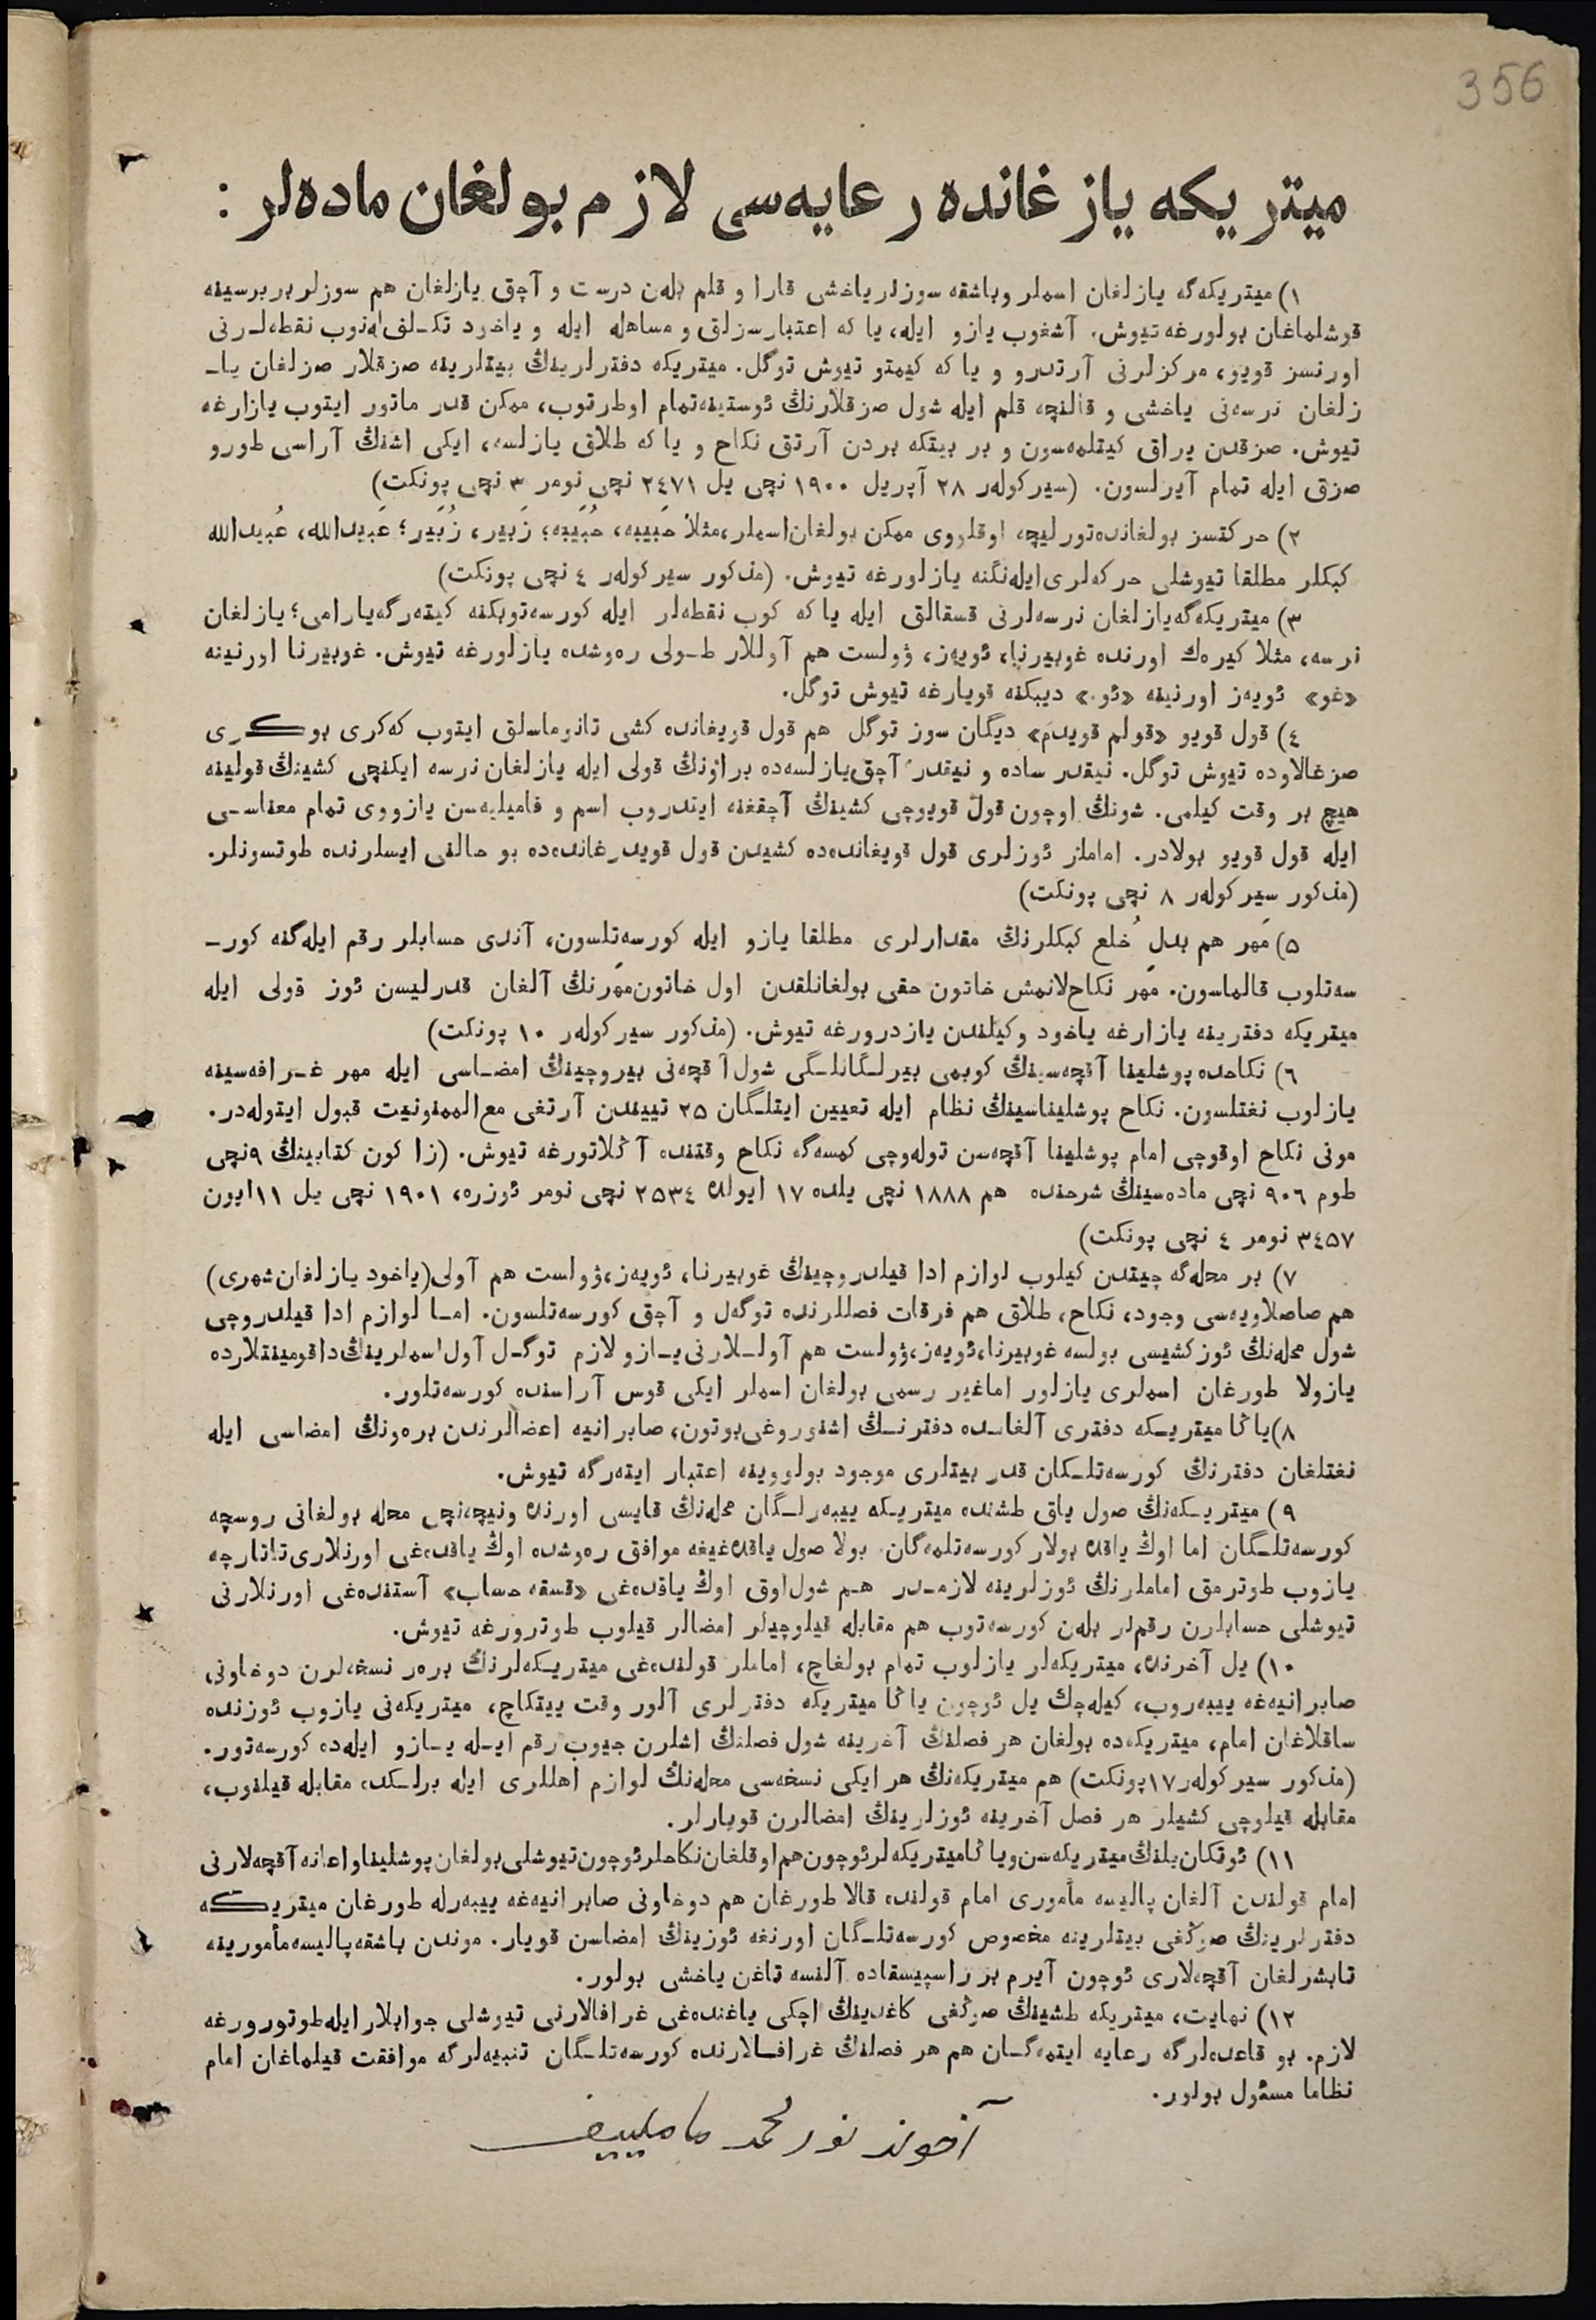 356
ميتريكه يازغانده رعايه‌سى لازم بولغان ماده‌لر :
١) ميتريكه‌گه يازلغان اسملر وباشقه سوزلر ياخشى قارا و قلم بله‌ن درست و آچق يازلغان هم سوزلر بربرسينه
قوشلماغان بولورغه تيوش. آشغوب يازو ايله، يا كه اعتبارسزلق و مساهله ايله و ياخود تكـلف له‌نوب نقطه‌لـرنى
اورنسز قويو، مركزلرنى آرتدرو و يا كه كيمتو تيوش توگل. ميتريكه دفترلرينڭ بيتلرينه صزقلار صزلغان يا‌ـ
زلغان نرسه‌نى ياخشى و قالنچه قلم ايله شول صزقلارنڭ ئوستينه تمام اوطرتوب، ممكن قدر ماتور ايتوب يازارغه
تيوش. صزقدن يراق كيتلمه‌سون و بر بيتكه بردن آرتق نكاح و يا كه طلاق يازلسه، ايكى اشنڭ آراسى طورو
صزق ايله تمام آيرلسون. (سيركوله‌ر ٢٨ آپريل ١٩٠٠ نچى يل ٢٤٧١ نچى نومر ٣ نچى پونكت)
٢) حركتسز بولغانده تورليچه اوقلووى ممكن بولغان اسملر، مثلا حَبيبه، حُبَيبه؛ زَبير، زُبَير؛ عَبيدالله، عُبيدالله
كبكلر مطلقا تيوشلى حركه‌لرى ايله‌نگنه يازلورغه تيوش. (مذكور سيركوله‌ر ٤ نچى پونكت)
٣) ميتريكه‌گه يازلغان نرسه‌لرنى قسقالق ايله يا كه كوب نقطه‌لر ايله كورسه‌توبكنه كيته‌رگه يارامى؛ يازلغان
نرسه، مثلا كيره‌ك اورنده غوبيرنا، ئويه‌ز، ۋولست هم آوللار طـولى ره‌وشده يازلورغه تيوش. غوبيرنا اورنينه
«غو» ئويه‌ز اورنينه «ئو.» ديبكنه قويارغه تيوش توگل.
٤) قول قويو «قولم قويدم» ديگان سوز توگل هم قول قويغانده كشى تانوماسلق ايتوب كه‌كرى بوكـرى
صزغالاوده تيوش توگل. نيقدر ساده و نيقدر آچق يازلسه‌ده براونڭ قولى ايله يازلغان نرسه ايكنچى كشينڭ قولينه
هيچ بر وقت كيلمى. شونڭ اوچون قول قويوچى كشينڭ آچقغنه ايتدروب اسم و فاميليه‌سن يازووى تمام معناسـى
ايله قول قويو بولادر. اماملر ئوزلرى قول قويغانده‌ده كشيدن قول قويدرغانده‌ده بو حالنى ايسلرنده طوتسونلر.
(مذكور سيركوله‌ر ٨ نچى پونكت)
٥) مَهر هم بدلِ خُلع كبكلرنڭ مقدارلرى مطلقا يازو ايله كورسه‌تلسون، آندى حسابلر رقم ايله‌گنه كورـ
سه‌تلوب قالماسون. مَهر نكاحلانمش خاتون حقى بولغانلقدن اول خاتون مَهرنڭ آلغان قدرليسن ئوز قولى ايله
ميتريكه دفترينه يازارغه ياخود وكيلندن يازدرورغه تيوش. (مذكور سيركوله‌ر ١٠ پونكت)
٦) نكاحده پوشلينا آقچه‌سينڭ كوبمى بيرلـگانلـگى شول آقچه‌نى بيروچينڭ امضـاسى ايله مهر غـرافه‌سينه
يازلوب نغتلسون. نكاح پوشليناسينڭ نظام ايله تعيين ايتلـگان ٢٥ تييندن آرتغى مع‌الممنونيت قبول ايتوله‌در.
مونى نكاح اوقوچى امام پوشلينا آقچه‌سن توله‌وچى كمسه‌گه نكاح وقتنده آڭلاتورغه تيوش. (زاكون كتابينڭ ٩نچى
طوم ٩٠٦ نچى ماده‌سينڭ شرحنده هم ١٨٨٨ نچى يلده ١٧ ايولده ٢٥٣٤ نچى نومر ئوزره، ١٩٠١ نچى يل ١١ ايون
٣٤٥٧ نومر ٤ نچى پونكت)
٧) بر محله‌گه چيتدن كيلوب لوازم ادا قيلدروچينڭ غوبيرنا، ئويه‌ز، ۋولست هم آولى (ياخود يازلغان شهرى)
هم صاصلاويه‌سى وجود، نكاح، طلاق هم فرقات فصللرنده توگه‌ل و آچق كورسه‌تلسون. امـا لوازم ادا قيلدروچى
شول محله‌نڭ ئوز كشيسى بولسه غوبيرنا، ئويه‌ز، ۋولست هم آولـلارنى يـازو لازم توگـل آول اسملرينڭ داقومينتلارده
يازولا طورغان اسملرى يازلور اما غير رسمى بولغان اسملر ايكى قوس آراسنده كورسه‌تلور.
٨) ياڭا ميتريـكه دفترى آلغانـده دفترنـڭ اشنوروغى بوتون، صابرانيه اعضالرندن بره‌ونڭ امضاسى ايله
نغتلغان دفترنڭ كورسه‌تلـگان قدر بيتلرى موجود بولووينه اعتبار ايته‌رگه تيوش.
٩) ميتريـكه‌نڭ صول ياق طشنده ميتريـكه ييبه‌رلـگان محله‌نڭ قايسى اورنده ونيچه‌نچى محله بولغانى روسچه
كورسه‌تلـگان اما اوڭ ياقده بولار كورسه‌تلمه‌گان. بولا صول ياقده‌غيغه موافق ره‌وشده اوڭ ياقده‌غى اورنلارى تاتارچه
يازوب طوترمق اماملرنڭ ئوزلرينه لازمـدر هـم شول اوق اوڭ ياقده‌غى «قسقه حساب» آستنده‌غى اورنلارنى
تيوشلى حسابلرن رقملر بله‌ن كورسه‌توب هم مقابله قيلوچيلر امضالر قيلوب طوترورغه تيوش.
١٠) يل آخرنده، ميتريكه‌لر يازلوب تمام بولغاچ، اماملر قولنده‌غى ميتريـكه‌لرنڭ بره‌ر نسخه‌لرن دوخاونى
صابرانيه‌غه ييبه‌روب، كيله‌چك يل ئوچون ياڭا ميتريكه دفترلرى آلور وقت ييتكاچ، ميتريكه‌نى يازوب ئوزنده
ساقلاغان امام، ميتريكه‌ده بولغان هر فصلنڭ آخرينه شول فصلنڭ اشلرن جيوب رقم ايـله يـازو ايله‌ده كورسه‌تور.
(مذكور سيركوله‌ر ١٧ پونكت) هم ميتريكه‌نڭ هر ايكى نسخه‌سى محله‌نڭ لوازم اهللرى ايله برلـكده مقابله قيلنوب،
مقابله قيلوچى كشيلر هر فصل آخرينه ئوزلرينڭ امضالرن قويارلر.
١١) ئوتكان يلنڭ ميتريكه‌سن و ياڭا ميتريكه‌لر ئوچون هم اوقلغان نكاحلر ئوچون تيوشلى بولغان پوشلينا و اعانه آقچه‌لارنى
امام قولندن آلغان پاليسه مأمورى امام قولنده قالا طورغان هم دوخاونى صابرانيه‌غه ييبه‌رله طورغان ميتريـكه
دفترلرينڭ صوڭغى بيتلرينه مخصوص كورسه‌تلـگان اورنغه ئوزينڭ امضاسن قويار. موندن باشقه پاليسه مأمورينه
تابشرلغان آقچه‌لارى ئوچون آيرم بر راسپيسقاده آلنسه تاغن ياخشى بولور.
١٢) نهايت، ميتريكه طشينڭ صوڭغى كاغدينڭ اچكى ياغنده‌غى غرافالارنى تيوشلى جوابلار ايله طوتورورغه
لازم. بو قاعده‌لرگه رعايه ايتمه‌گـان هم هر فصلنڭ غرافـالارنده كورسه‌تلـگان تنبيه‌لرگه موافقت قيلماغان امام
نظاما مسئول بولور.
آخوند نورمحمد ماملييف